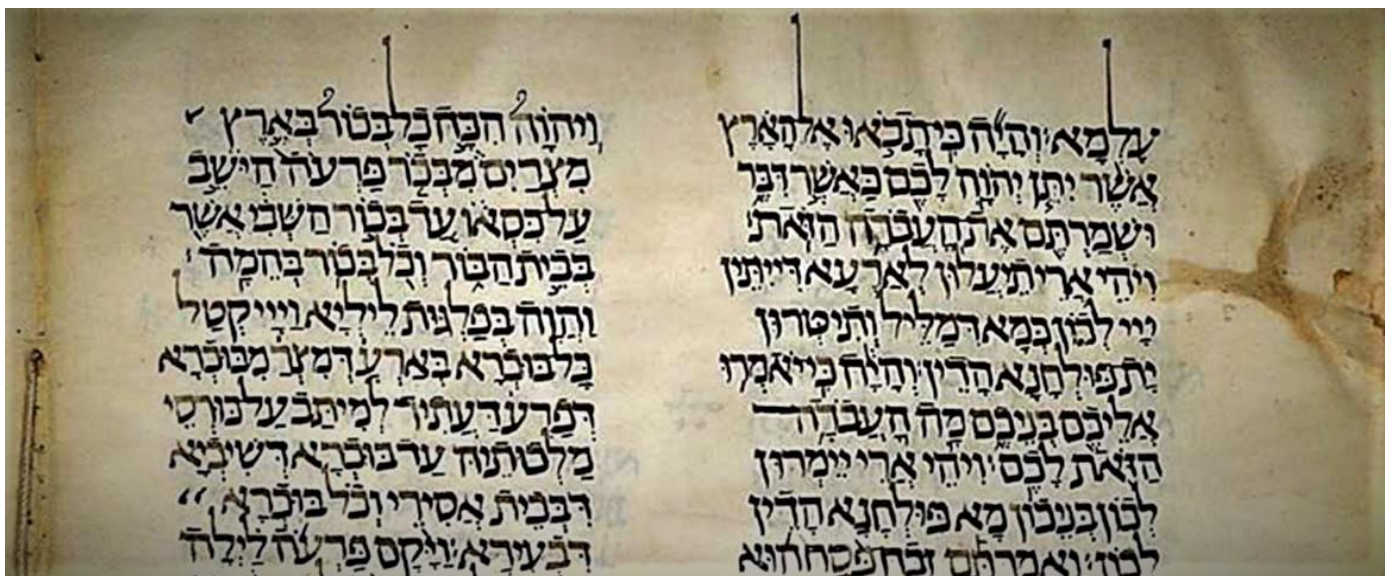 עלמא׃ והיה כי תבאו אל הארץ
אשר יתן יהוה לכם כאשר דבר
ושמרתם את העבדה הזאת׃
ויהי ארי תיעלון לארעא דייתין
ייי לכון כמא דמליל ותיטרון
ית פולחנא הדין׃ והיה כי יאמרו
אליכם בניכם מה העבדה
הזאת לכם׃ ויהי ארי יימרון
לכון בניכון מא פולחנא הדין
לכון׃ ואמרתם זבח פסח הוא
ויהוה הכה כל בכור בארץ
מצרים מבכר פרעה הישב
על כסאו עד בכור השבי אשר
בבית הבור וכל בכור בהמה׃
והוה בפלגות ליליא וייי קטל
כל בוכרא בארע דמצר מבוכרא
דפרעה דעתיד למיתב על כורסי
מלכותיה עד בוכרא דשיביא
דבבית אסירי וכל בוכרא
דבעירא׃ ויקם פרעה לילה